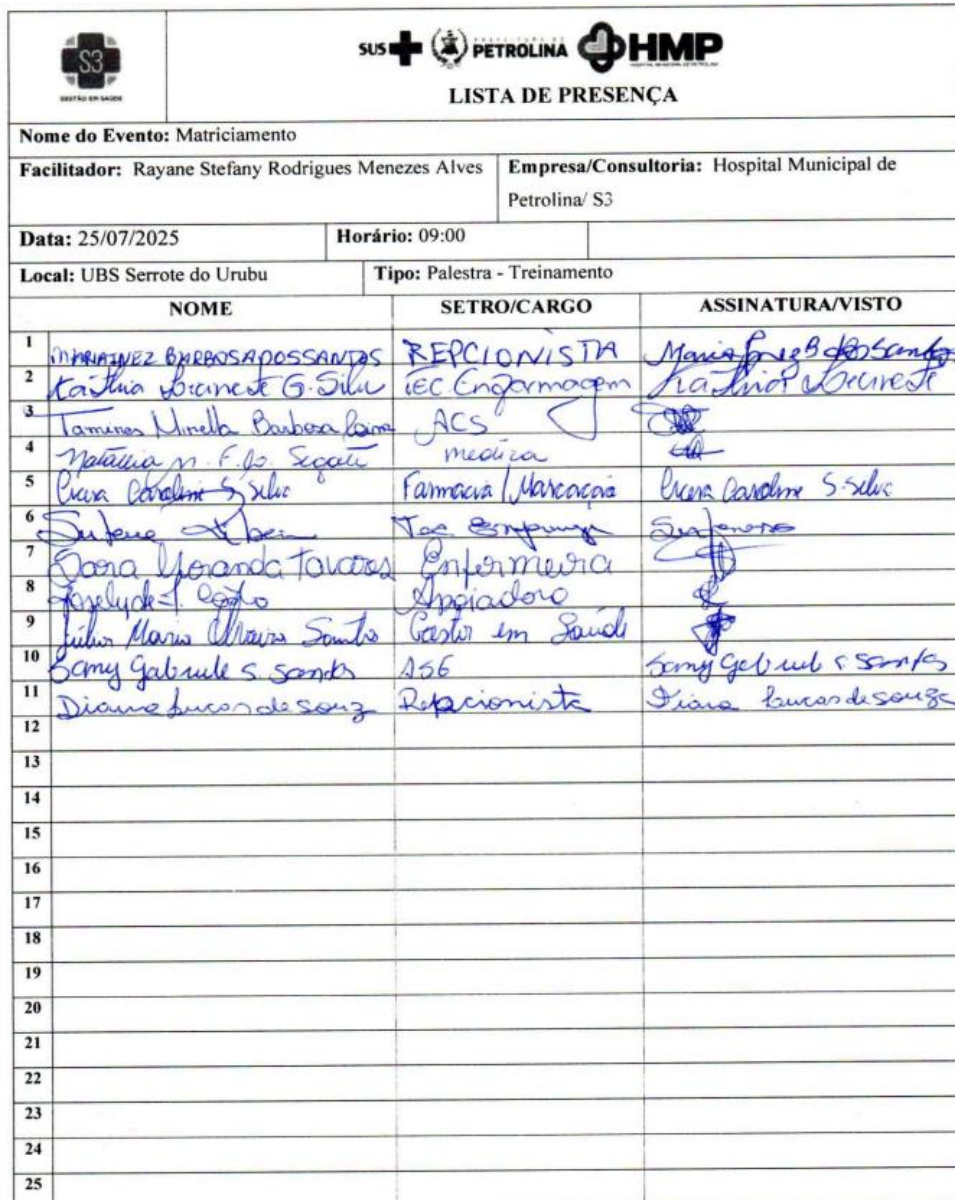 S3
GESTÃO EM SAÚDE
SUS PREFEITURA DE PETROLINA HMP
LISTA DE PRESENÇA
Nome do Evento: Matriciamento
Facilitador: Rayane Stefany Rodrigues Menezes Alves
Empresa/Consultoria: Hospital Municipal de
Petrolina/ S3
Data: 25/07/2025 Horário: 09:00
Local: UBS Serrote do Urubu Tipo: Palestra - Treinamento
NOME SETRO/CARGO ASSINATURA/VISTO
1 MARIA INEZ BARBOSA DOS SANTOS REPCIONISTA Maria Inez B dos Santos
2 Kaithia G. Silu TEC Engarmagem
3 Tamires Mirella Barbosa ACS
4 Natallia n. F. medica
5 Caroline S. Silva Farmacia / Marcação Caroline S. Silva
6 Tec
7 Sara Miranda Tavares Enfermeira
8 Apoiadora
9 Júlio Mario Oliveira Santos Gestor em Saúde
10 Samy Gabriele S. Santos ASG Samy Gabriele S Santos
11 Diana Lucas de Souz Repcionista Diana Lucas de Souza
12
13
14
15
16
17
18
19
20
21
22
23
24
25